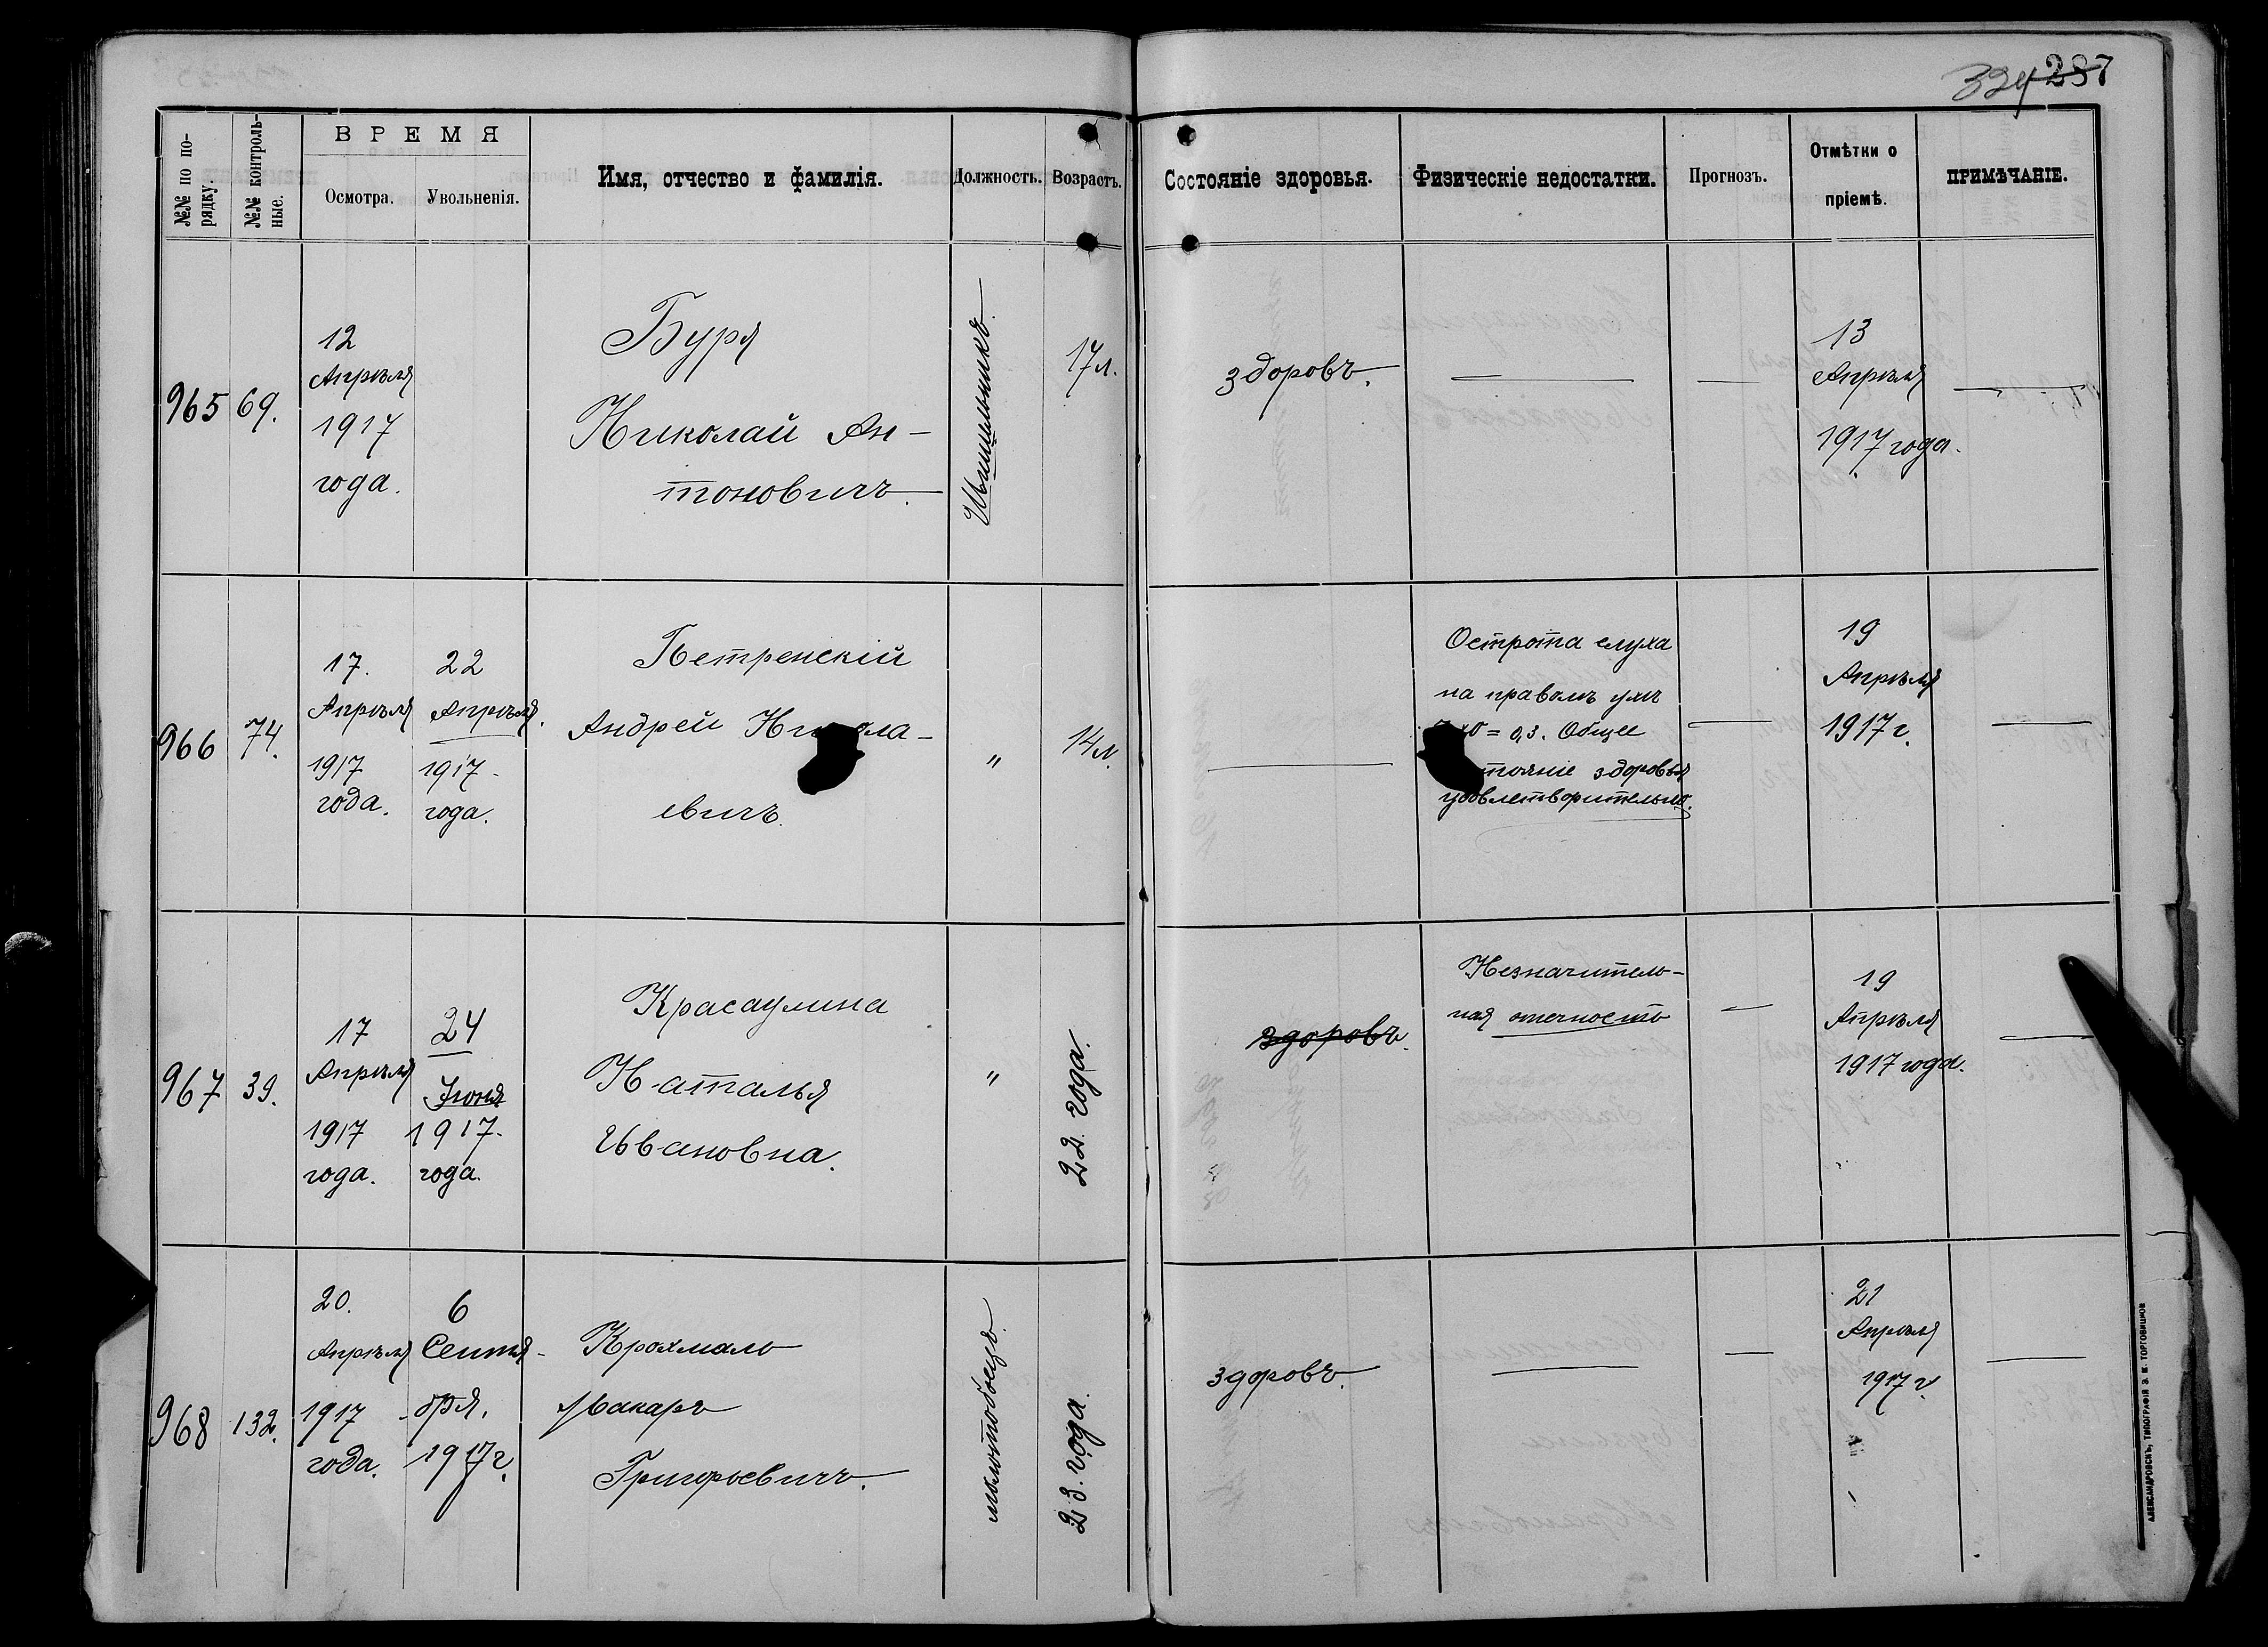 324 287
№№ по по-
рядку.
№№ контроль-
ные.
ВРЕМЯ
Осмотра.
Увольненія.
Имя, отчество и фамилія.
Должность.
Возрастъ.
Состояніе здоровья.
Физическіе недостатки.
Прогнозъ.
Отмѣтки о
пріемѣ.
ПРИМѢЧАНІЕ.
965
69.
12
Апрѣля
1917
года.
Буря
Николай Ан-
тоновичъ.
17 л.
здоровъ.
13
Апрѣля
1917 года.
966
74.
17.
Апрѣля
1917
года.
22
Апрѣля.
1917
года.
Петренскій
Андрей
евичъ.
"
14 л.
Острота слуха
на правомъ ухѣ
= 0,3. Общее
здоровья
удовлетворительно.
19
Апрѣля
1917 г.
967
39.
17
Апрѣля
1917
года.
24
Іюня
1917
года.
Красаулина
Наталья
Ивановна.
"
22 года.
здоровъ.
Незначитель-
ная отечность
19
Апрѣля
1917 года.
968
132.
20.
Апрѣля
1917
года.
6
Сентя-
бря.
1917 г.
Крохмаль
Макаръ
Григорьевичъ.
молотобоецъ.
23. года.
здоровъ.
21
Апрѣля
1917 г.
АЛЕКСАНДРОВСКЪ, ТИПОГРАФІЯ Э. И. ТОРГОВИЦКОВ